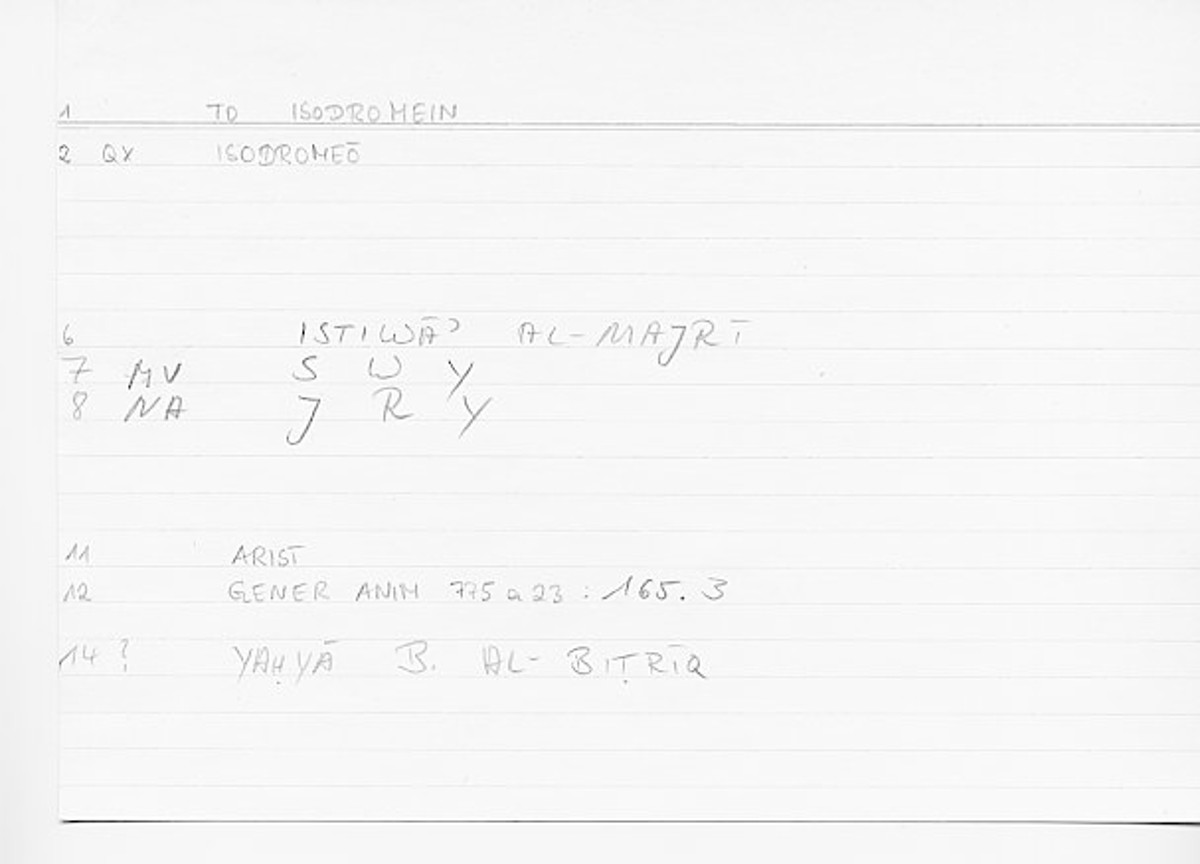 1 TO ISODROMEIN
2 QX ISODROMEŌ
6 ISTIWĀʾ AL-MAJRĪ
7 MV S W Y
8 NA J R Y
11 ARIST
12 GENER ANIM 775 a 23 : 165. 3
14 ? YAḤYĀ B. AL-BIṬRĪQ